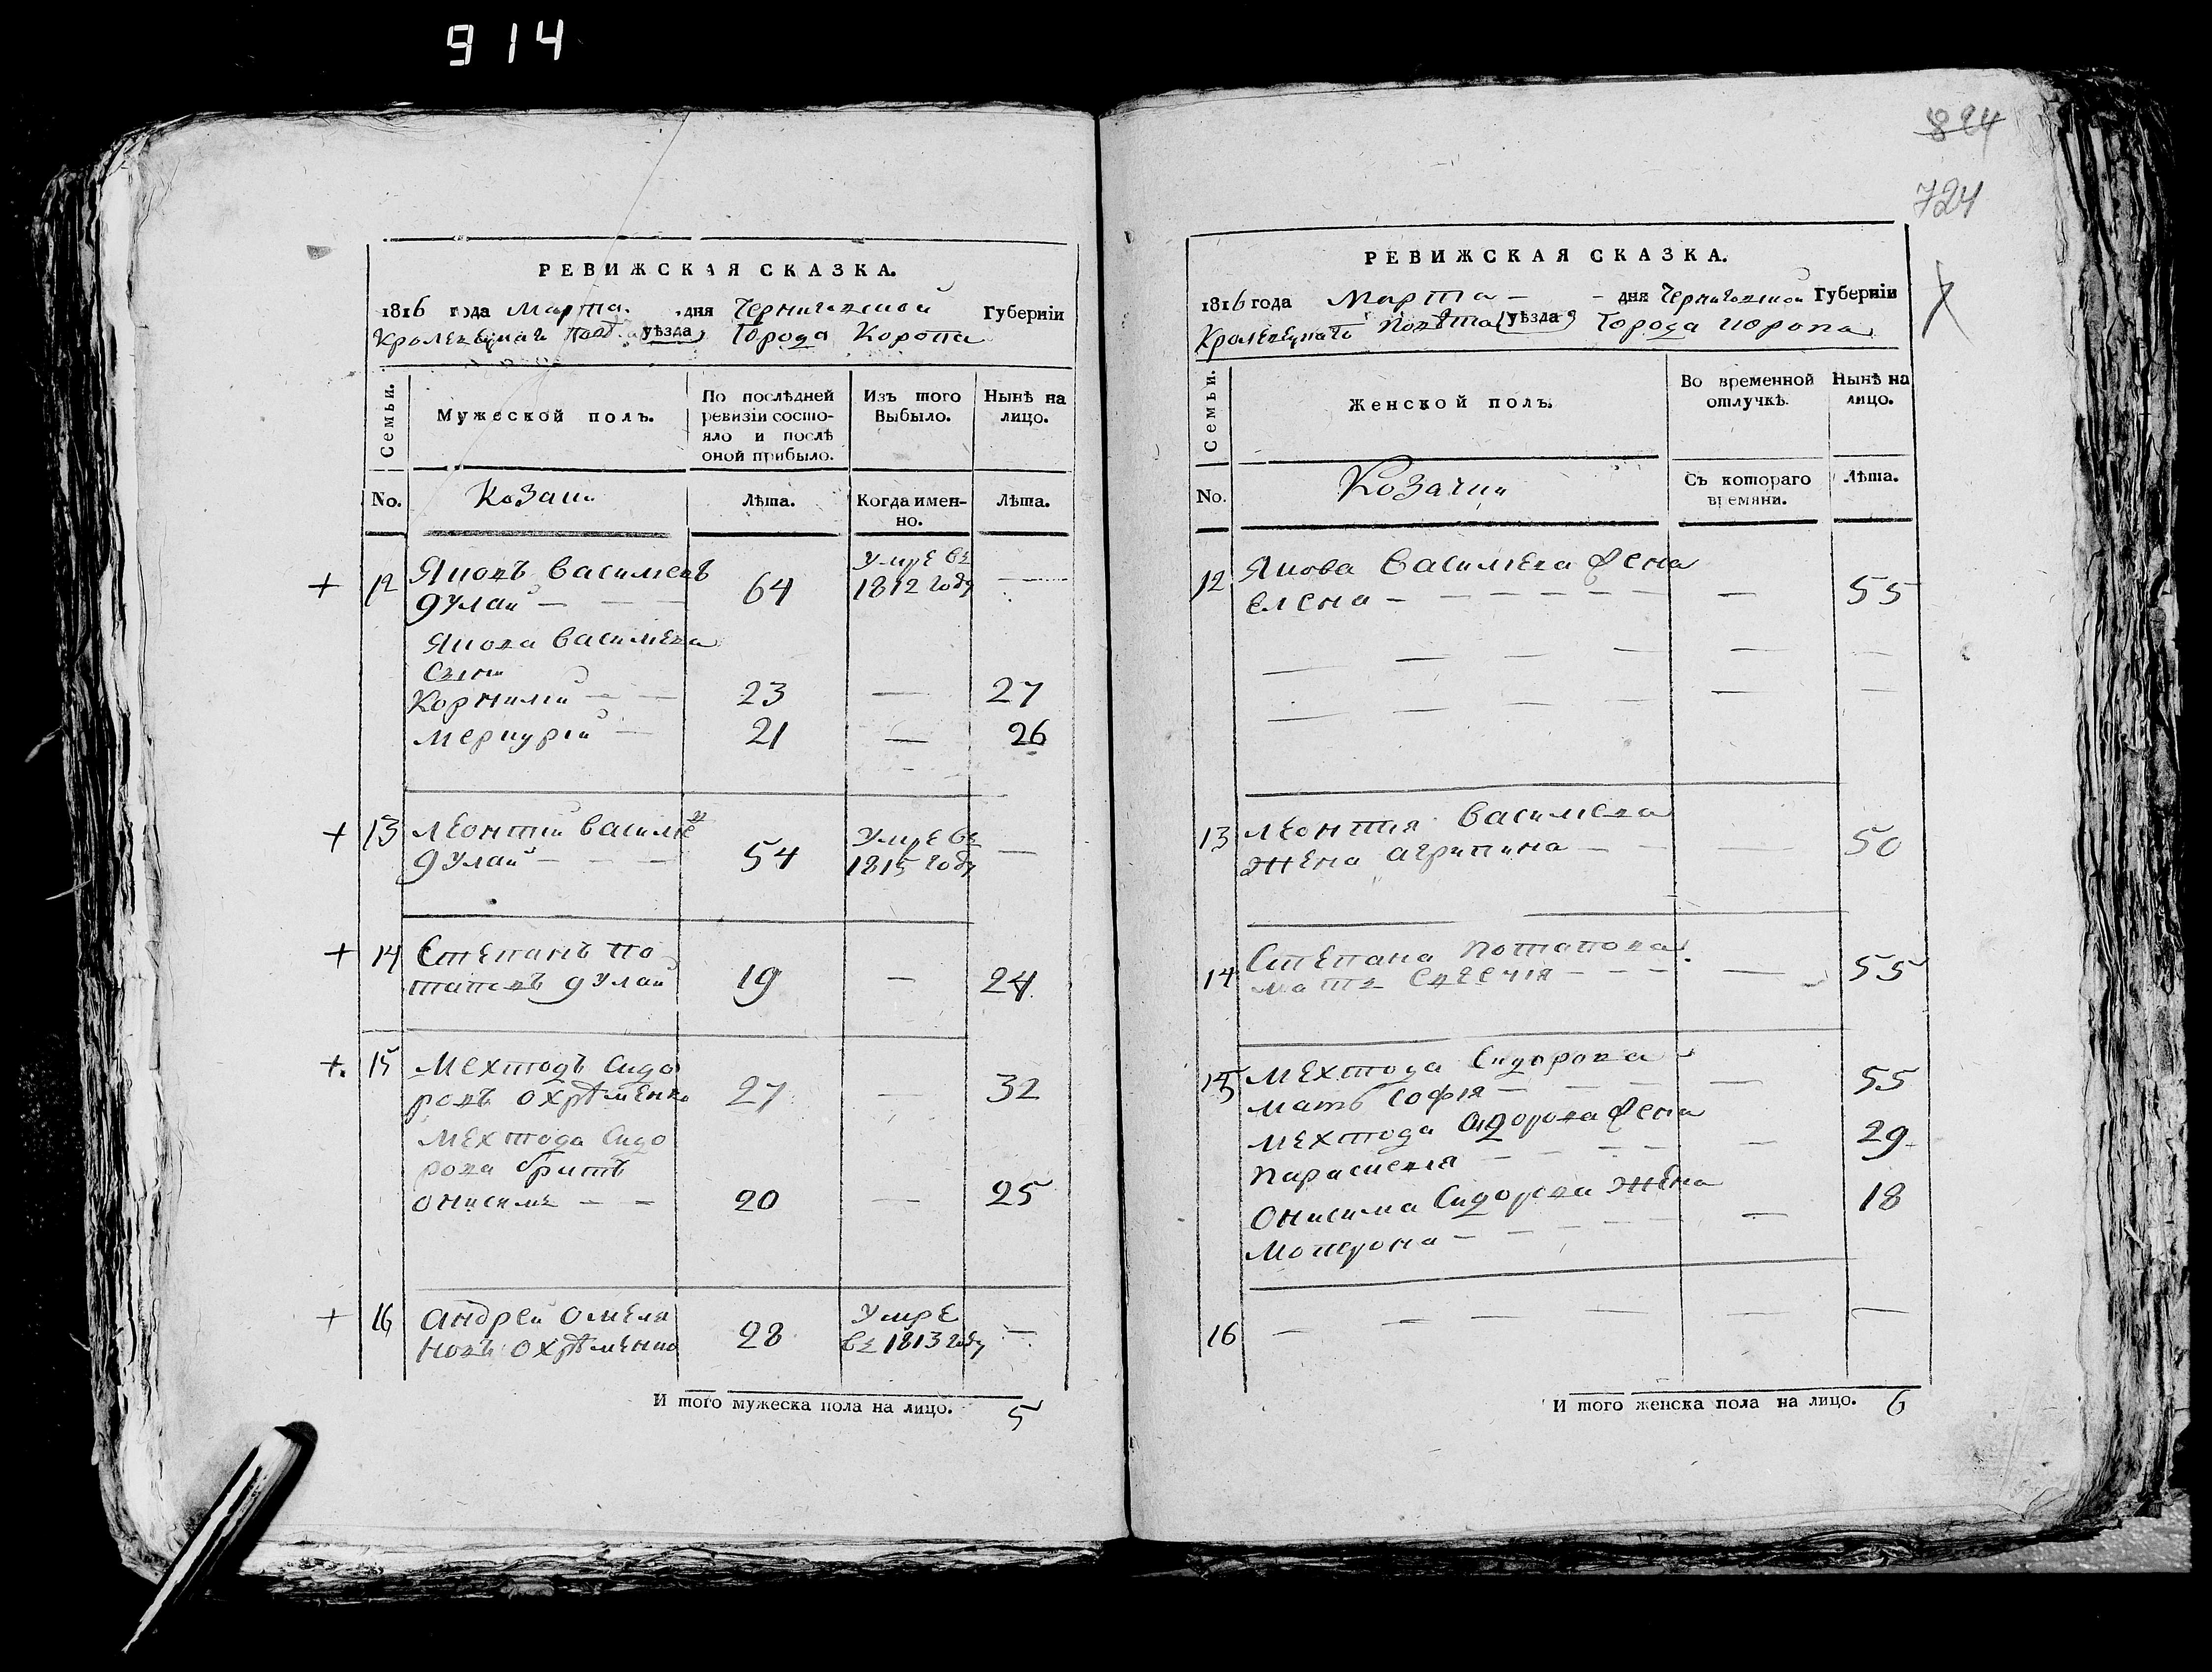 914
РЕВИЖСКАЯ СКАЗКА.
1816 года Марта дня Черниговской Губерніи
Кролевецкаго Повѣта уѣзда Города Коропа
Семьи.
Мужеской полъ.
По послѣдней ревизіи состояло и послѣ оной прибыло.
Изъ того Выбыло.
Нынѣ на лицо.
No.
Козаки
Лѣта.
Когда именно.
Лѣта.
+ 12 Яковъ Васильевъ
Дулай — 64 Умре въ 1812 году —
Якова Васильева
Сыни
Корнилій — 23 — 27
Меркурій — 21 — 26
+ 13 Леонтій Василiевъ
Дулай — 54 Умре въ 1815 году —
+ 14 Степанъ По
таповъ Дулай 19 — 24
+ 15 Мехтодъ Сидо
ровъ Охрѣменко 27 — 32
Мехтода Сидо
рова братъ
Онисимъ — 20 — 25
+ 16 Андрей Омеля
новъ Охрѣменко 28 Умре въ 1813 году —
И того мужеска пола на лицо. 5
824
724
РЕВИЖСКАЯ СКАЗКА.
1816 года Марта — дня Черниговской Губерніи
Кролевецкаго Повѣта уѣзда Города Коропа
Семьи.
Женской полъ.
Во временной отлучкѣ.
Нынѣ на лицо.
No.
Козачки
Съ котораго времяни.
Лѣта.
12 Якова Василева жена
Елена — — 55
13 Леонтия Василева
жена Агрипина — — 50
14 Степана Потапова
мать Евгечия — — 55
15 Мехтода Сидорова
мать София — — 55
Мехтода Сидорова жена
Параскевия — — 29
Онисима Сидорова жена
Мотрона — — 18
16 — — —
И того женска пола на лицо. 6